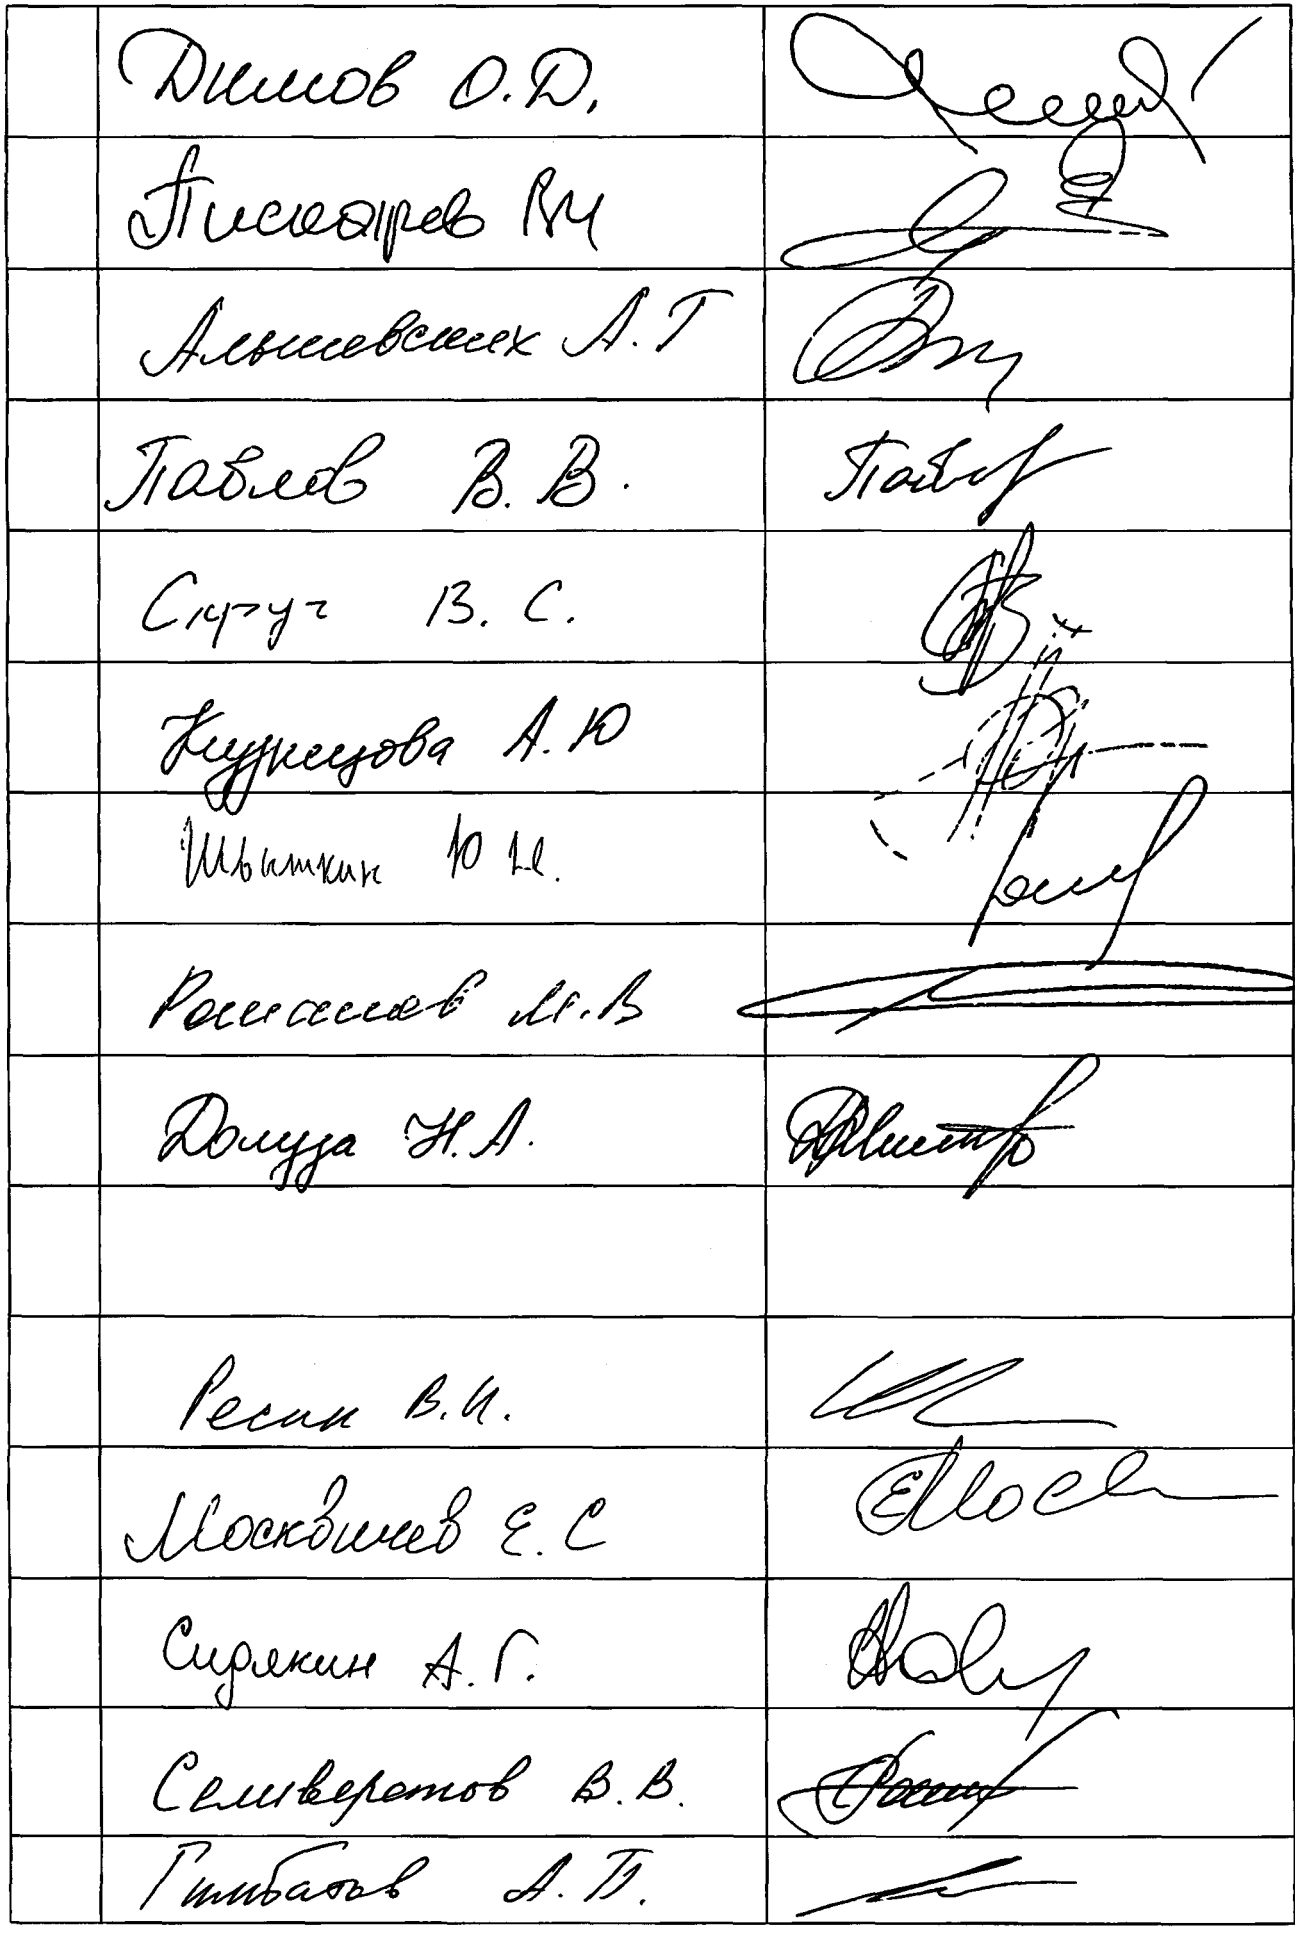 Димов О.Д.
Пискарев ВИ
Альшевских А.Г
Павлов В.В.
Скруг В.С.
Кузнецова А.Ю
Швыткин Ю.Н.
Романов М.В
Долуда Н.А.
Ресин В.И.
Москвичев Е.С
Сидякин А.Г.
Селиверстов В.В.
Гимбатов А.П.